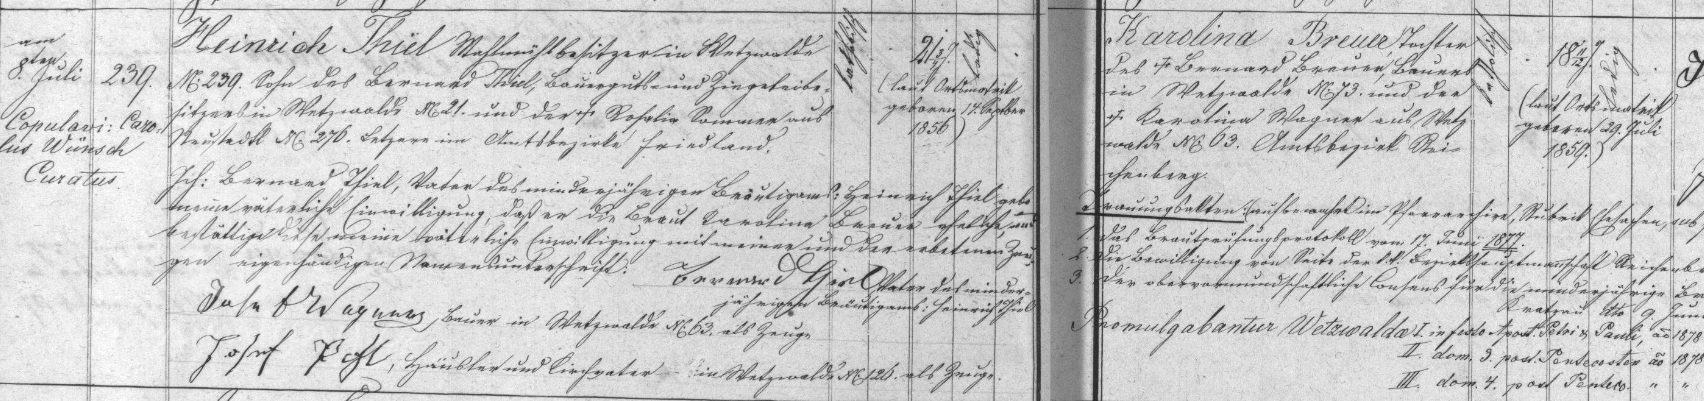 am
8ten Juli
239.
Copulavi: Caro-
lus Wünsch
Curatus.
Heinrich Thiel Mahlmühlbesitzer in Wetzwalde
N. 239. Sohn des Bernard Thiel, Bauerguts- und Ziegeleibe-
sitzers in Wetzwalde N. 21. und der † Rosalia Sommer aus
Neustadtl N. 276. Letzere im Amtsbezirke Friedland.
katholisch
21
ledig
(laut Ortsmatrik
geboren 14. September
1856)
Ich: Bernard Thiel, Vater des minderjährigen Bräutigams: Heinrich Thiel gebe
meine väterliche Einwilligung, daß er die Braut Carolina Breuer eheliche, und
bestättige diese meine väterliche Einwilligung mit meiner und der erbetenen Zeu-
gen eigenhändigen Namensunterschrift:
Bernard Thiel Vater des minder-
jährigen Bräutigams: Heinrich Thiel
Josef Wagner, Bauer in Wetzwalde N. 63. als Zeuge
Josef Pohl, Häusler und Kirchvater in Wetzwalde N. 126. als Zeuge.
Karolina Breuer, Tochter
des † Bernard Breuer, Bauers
in Wetzwalde N. 73. und der
† Karolina Wagner aus Wetz-
walde N. 63. Amtsbezirk Rei-
chenberg.
katholisch
18
ledig
(laut Ortsmatrik
geboren 29. Juli
1859.)
Trauungsakten aufbewahrt im Pfarrarchive, Rubrik Ehesachen, sub
1. Das Brautprüfungsprotokoll vom 17. Juni 1877.
2. Die Bewilligung von Seite der k.k. Bezirkshauptmannschaft Reichenb
3. Der obervormundschaftliche Consens für die minderjährige Br
Kratzau dto 9. Juni
Promulgabantur Wetzwaldae I. in festo Apost. Petri & Pauli, ao 1878
II. dom. 3. post. Pentecosten ao 1878
III. dom. 4. post Pentec. " "